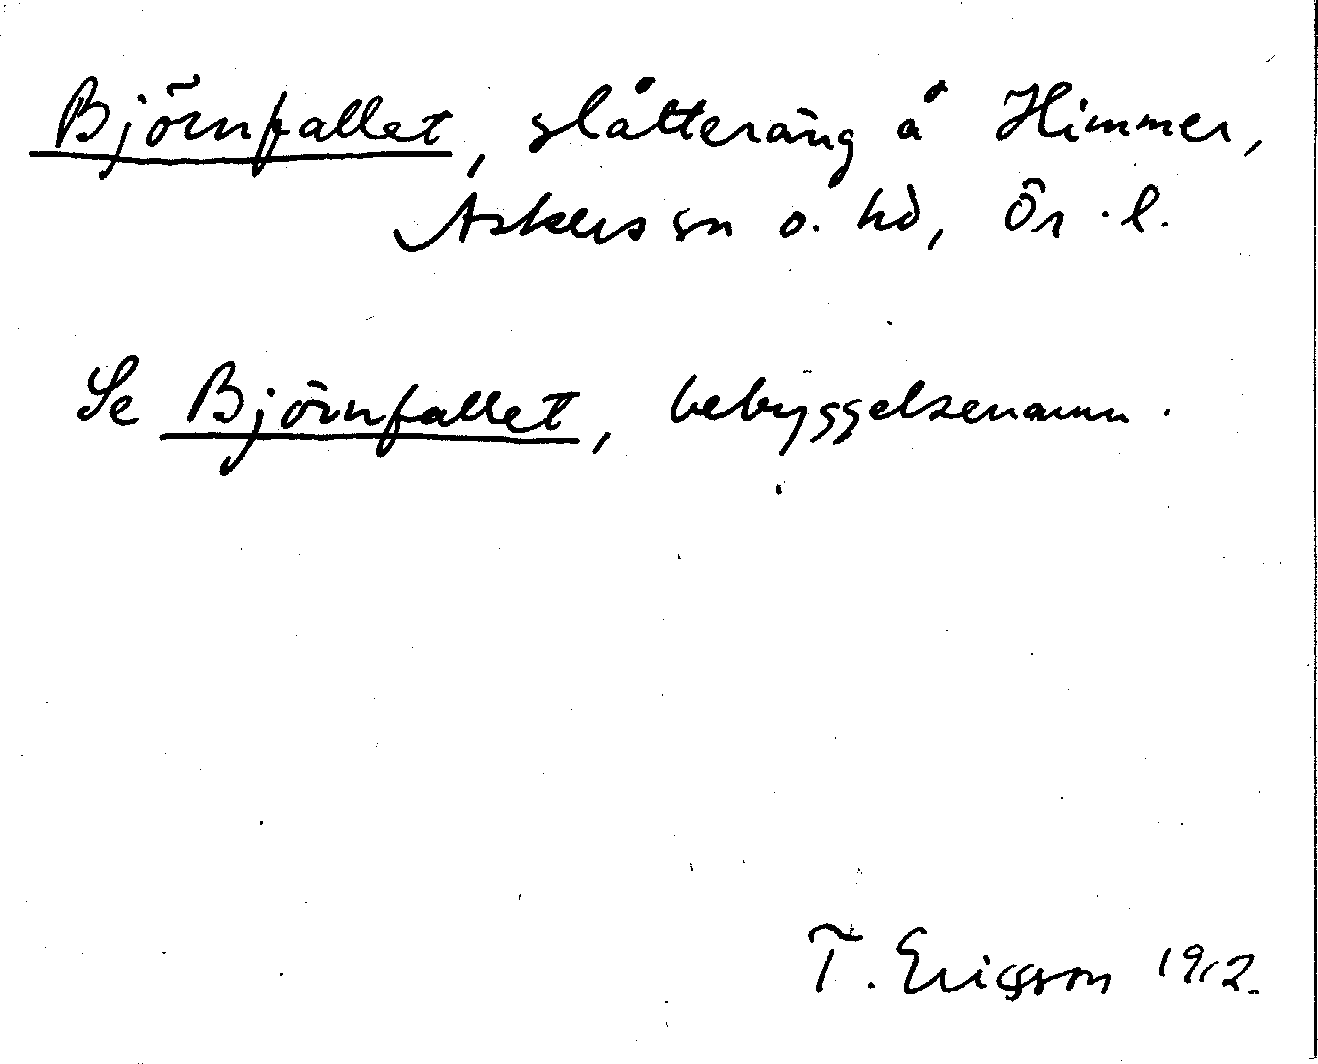 Björnfallet, slåtteräng å Himmer,
Askers sn o. hd, Ör. l.
Se Björnfallet, bebyggelsenamn.
T. Ericsson 1912.